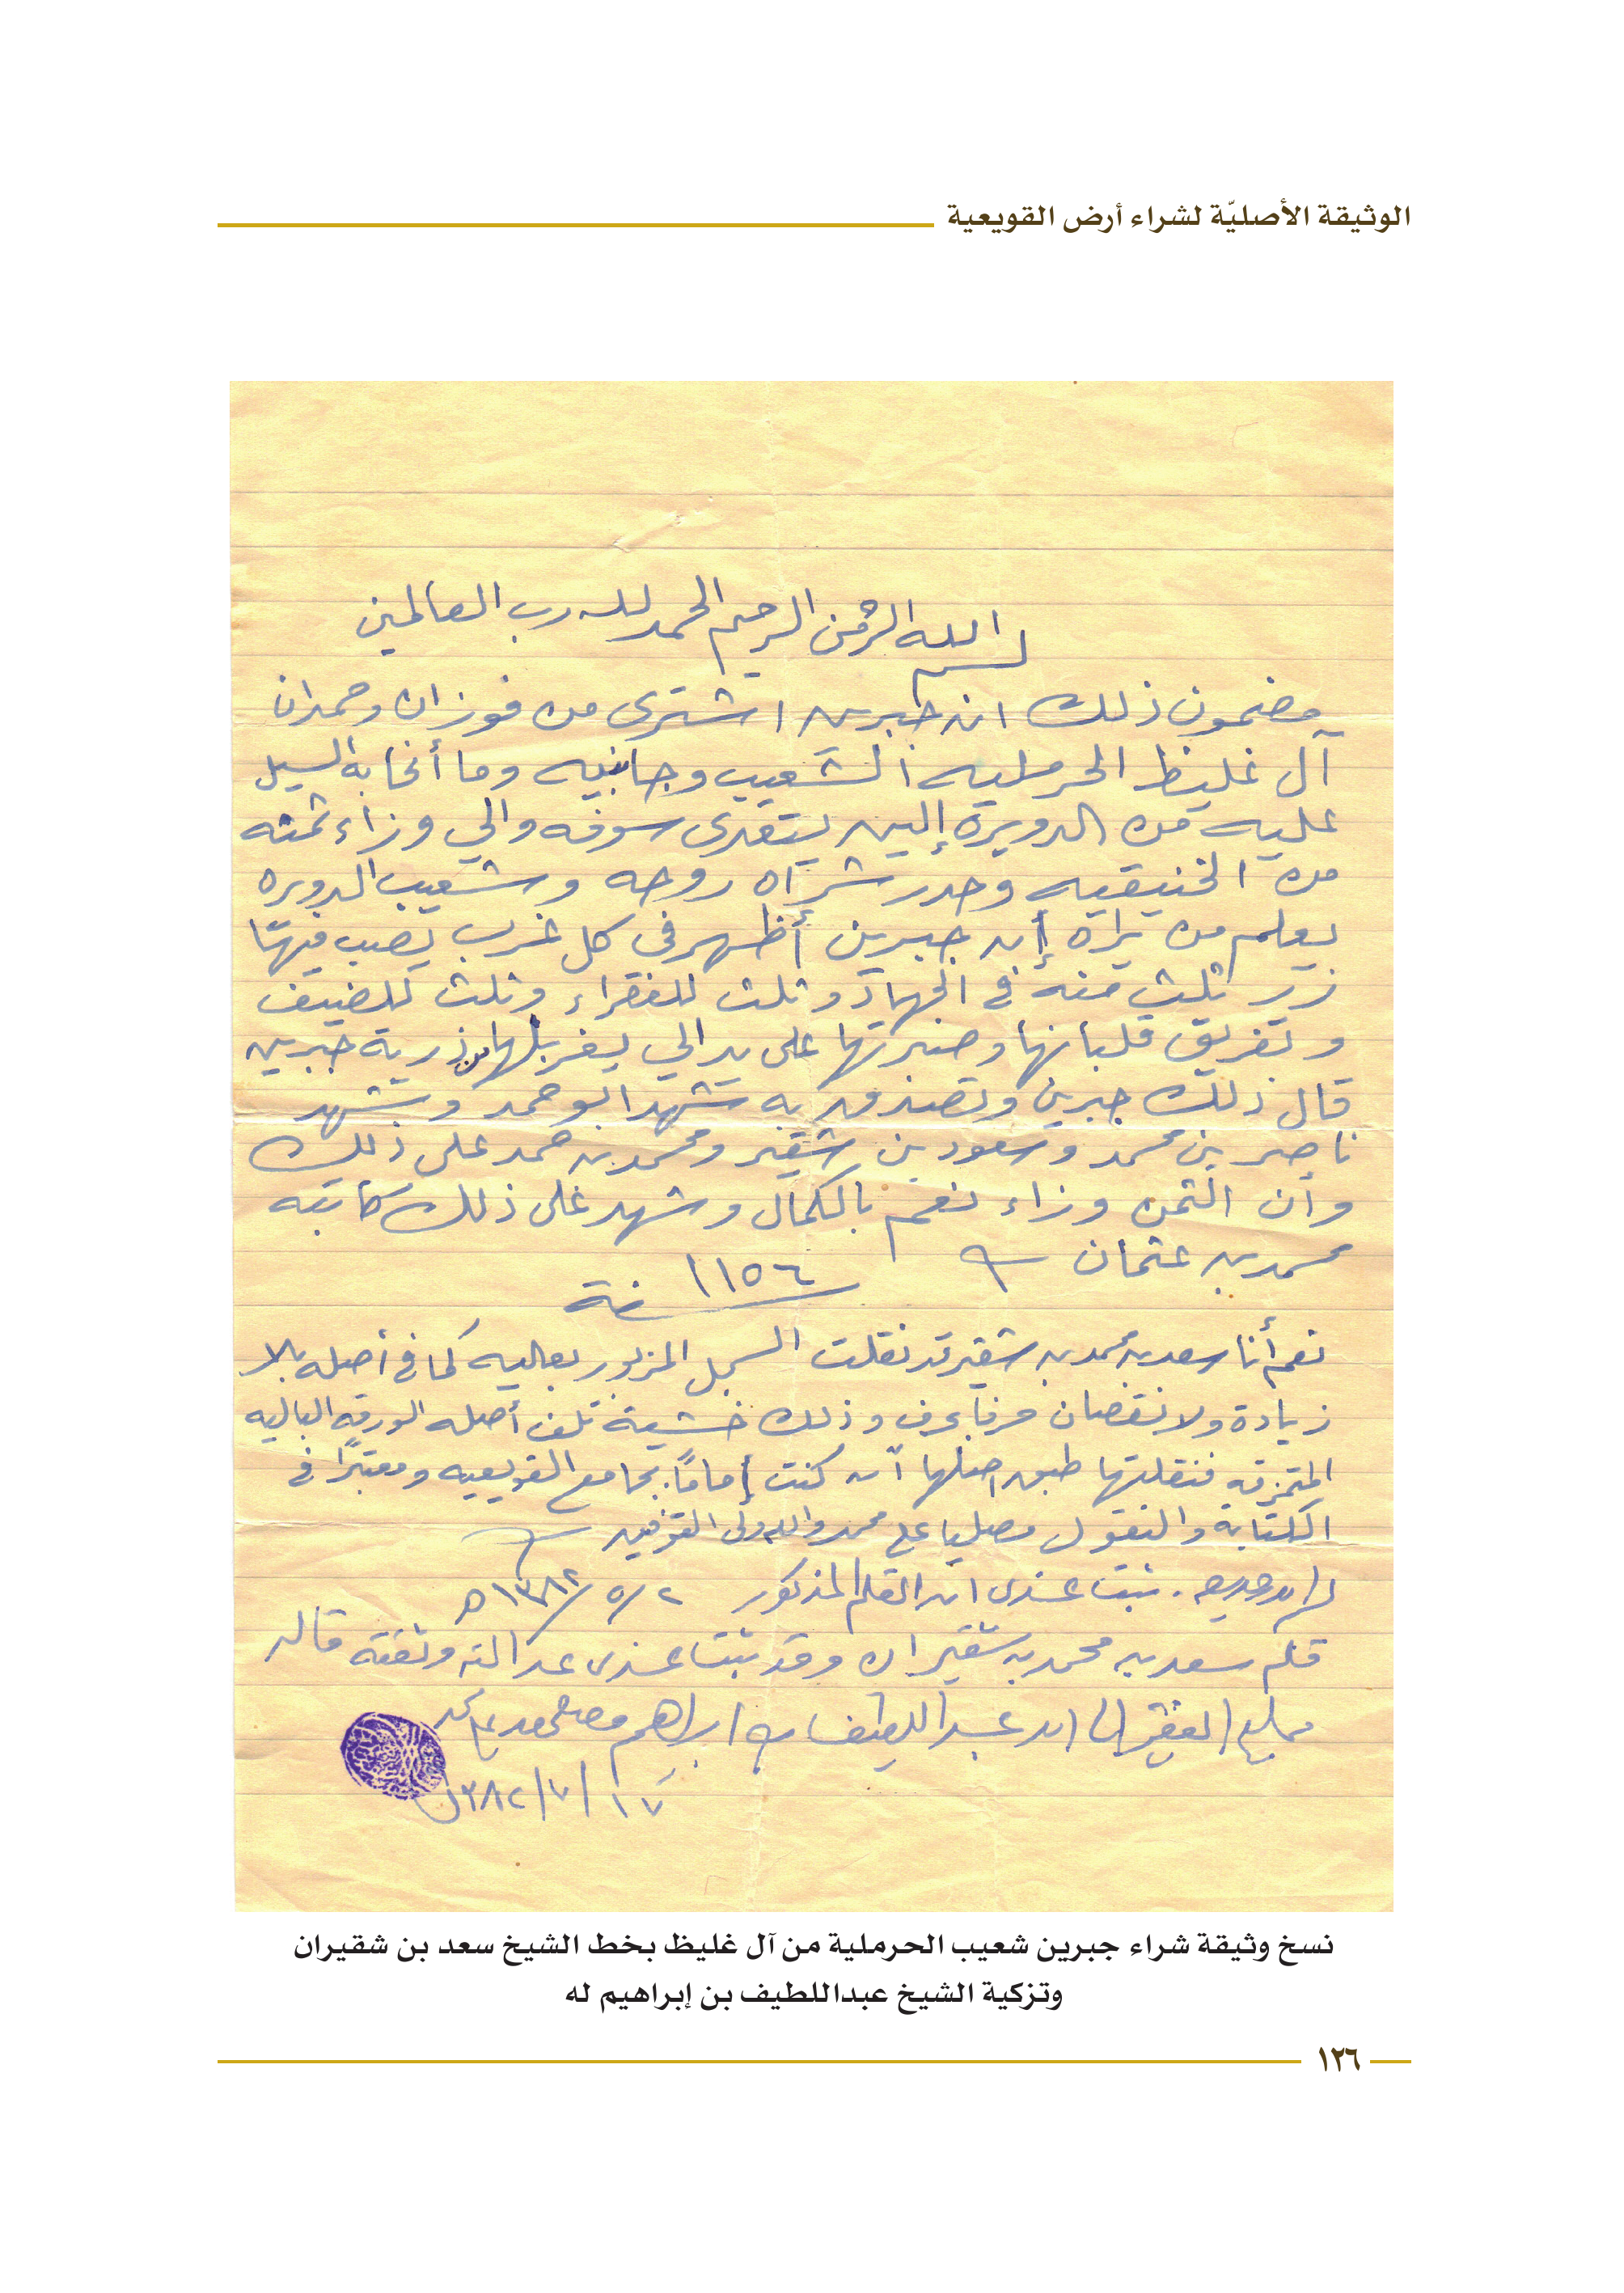 الوثيقة الأصليّة لشراء أرض القويعية
بسم الله الرحمن الرحيم الحمد لله رب العالمين
مضمون ذلك ان جبرين اشترى من فوزان وحمدان
آل غليظ الحرمليه الشعيب وجانبيه وما أنحا به السيل
عليه من الدويرة إلين يتعدى سوفه والي وزاء ثمنه
من الخنيقيه وحدر شراه روحه وشعيب الدويره
يعلم من يراه إن جبرين أظهر في كل غرب يصب فيها
زبر ثلث منه في الجهاد وثلث للفقراء وثلث للضيف
وتفريق قلبانها وصبرتها على يد الي يغربلها من ذرية جبرين
قال ذلك جبرين وتصدق به شهد ابو حمد وشهد
ناصر بن محمد وسعود بن شقير ومحمد بن حمد على ذلك
وأن الثمن وزاء نعم بالكمال وشهد على ذلك كاتبه
محمد بن عثمان
سنة ١١٥٦
نعم أنا سعد بن محمد بن شقير قد نقلت السجل المزبور بعاليه كما في أصله بلا
زيادة ولا نقصان حرفا بحرف وذلك خشية تلف أصله الورقه الباليه
المتمزقه فنقلتها طبق اصلها آن كنت إمامًا بجامع القويعيه ومعتبرًا في
الكتابة والنقول مصليا على محمد والله ولي التوفيق
الحمد لله وحده . ثبت عندي ان القلم المذكور ٢/٥/١٣٨٢ه
قلم سعد بن محمد بن شقيران وقد ثبت عندي عدالته وثقته قاله
ممليه الفقير الى الله عبد اللطيف بن ابراهيم مصلى على محمد
١٧/٧/١٣٨٢
نسخ وثيقة شراء جبرين شعيب الحرملية من آل غليظ بخط الشيخ سعد بن شقيران
وتزكية الشيخ عبداللطيف بن إبراهيم له
١٢٦